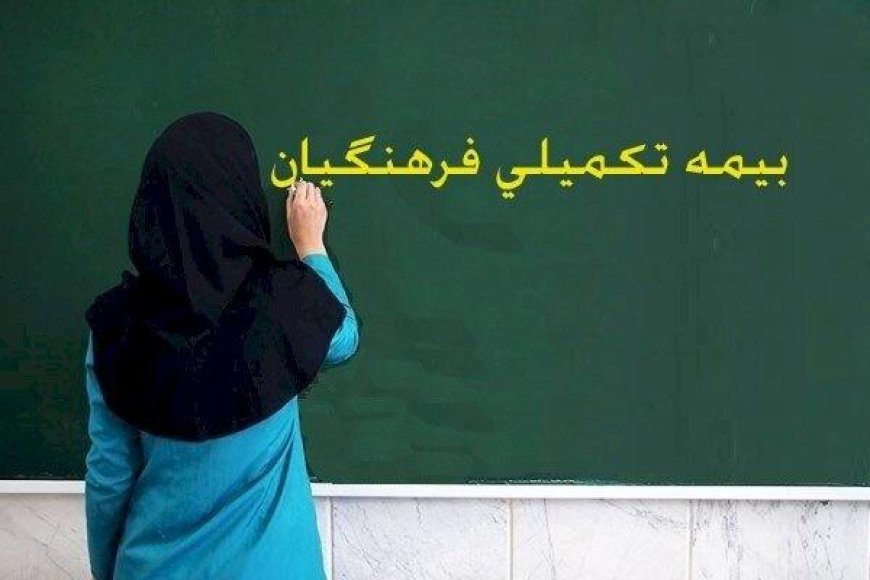 بيمه تکميلي فرهنگيان